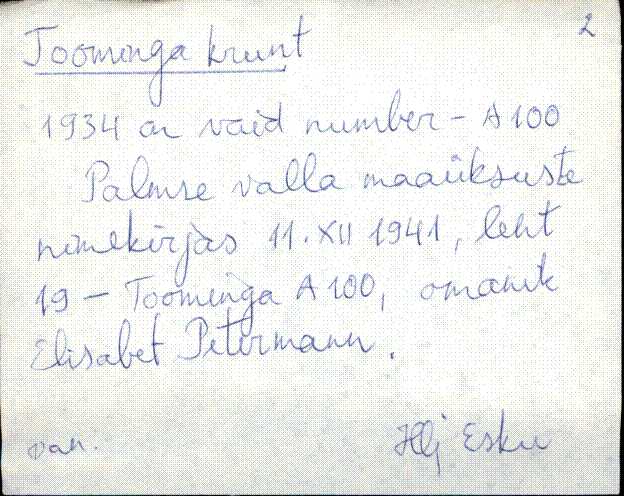 2
Toominga krunt
1934 on vaid number - A 100
Palmse valla maaüksuste
nimekirjas 11. XII 1941, leht
19 - Toominga A 100, omanik
Elisabet Petermann.
van. Esku